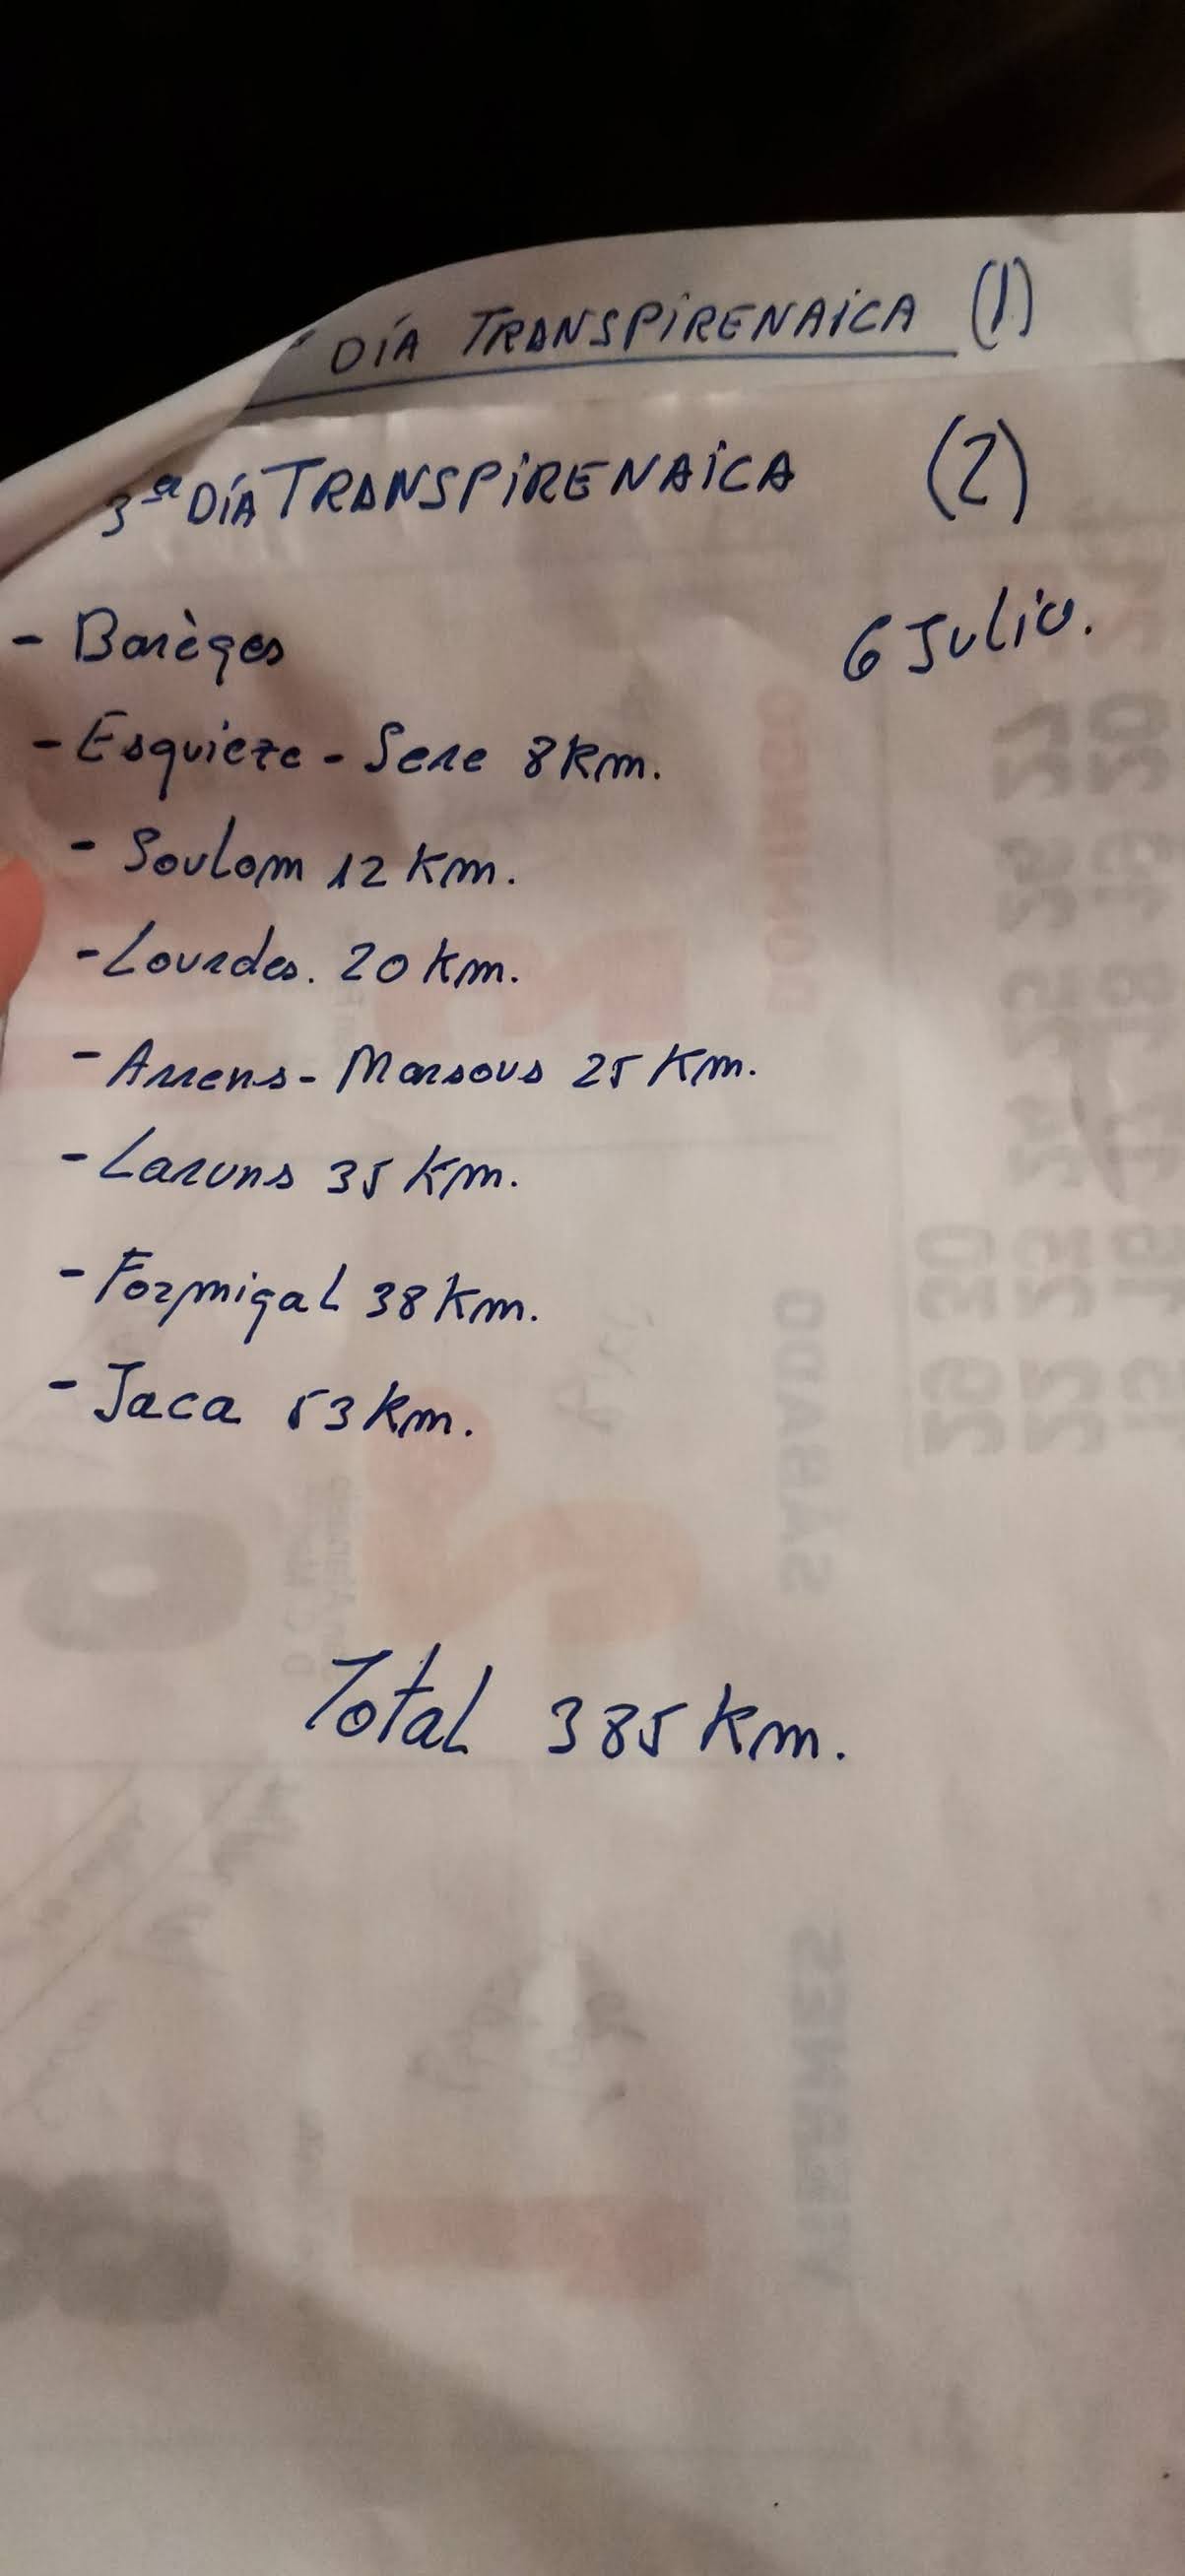 DÍA TRANSPIRENAICA (1)
3ª DÍA TRANSPIRENAICA (2)
6 Julio.
- Barèges
- Esquieze - Sere 8 km.
- Soulom 12 km.
- Lourdes. 20 km.
- Arrens - Marsous 25 km.
- Laruns 35 km.
- Formigal 38 km.
- Jaca 53 km.
Total 385 km.
DOMINGO
SÁBADO
VIERNES